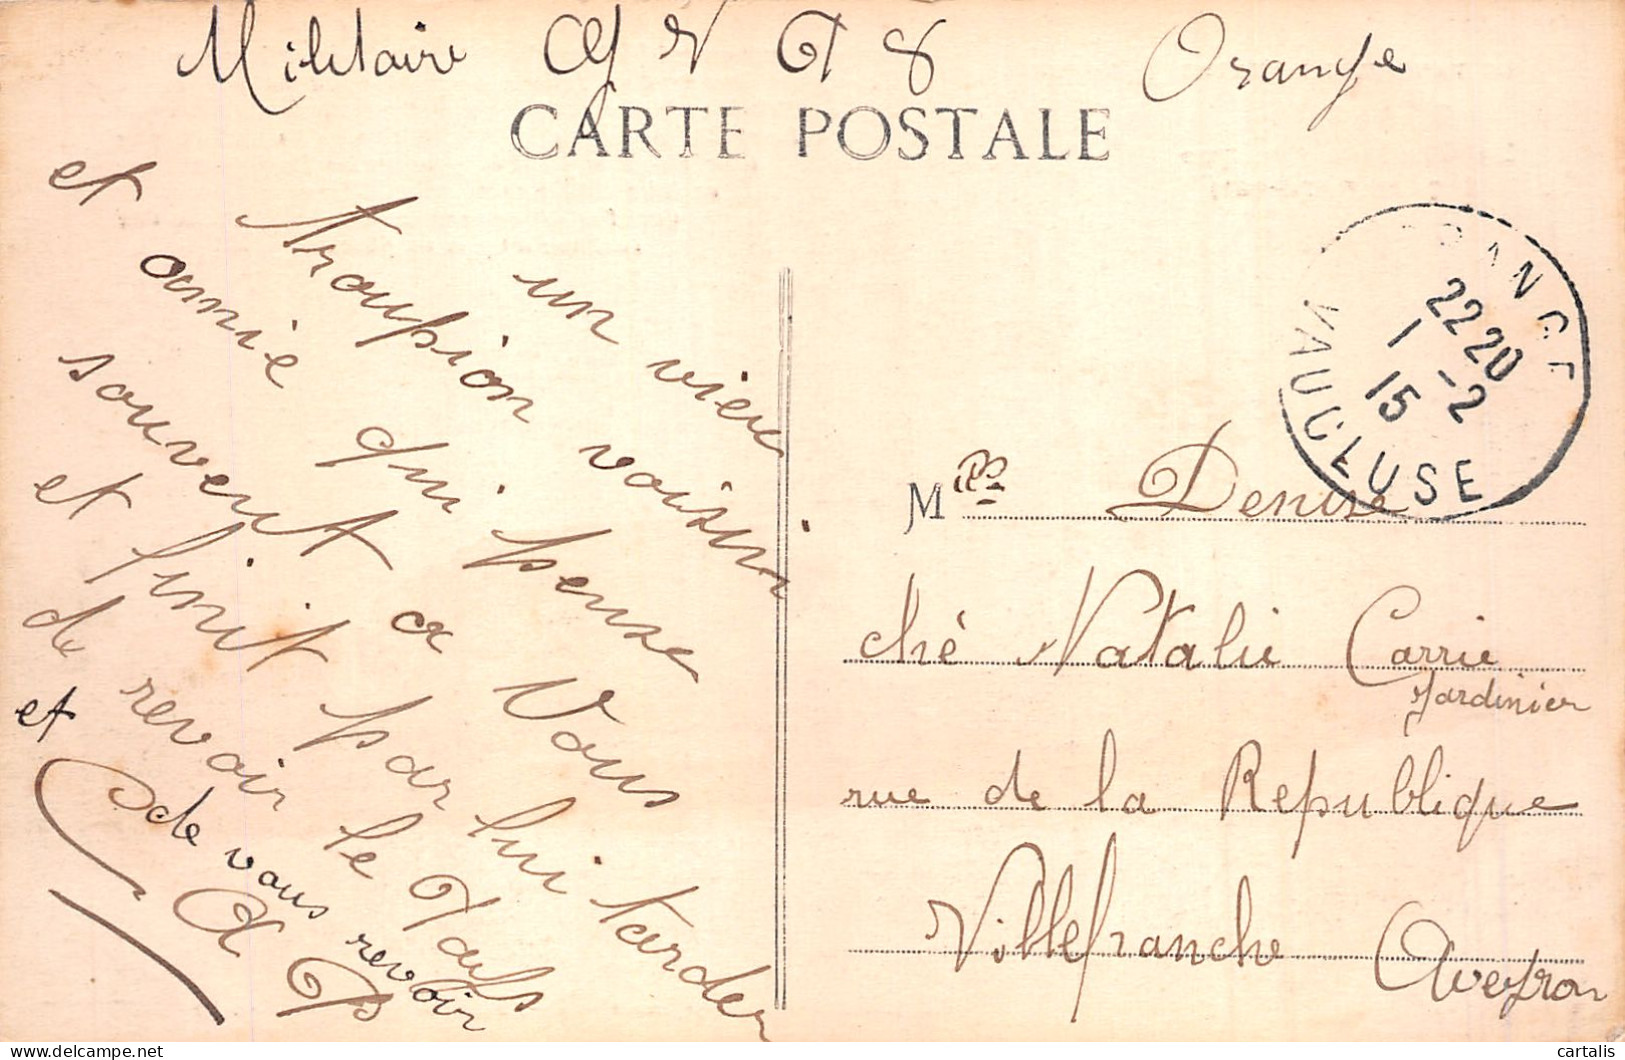 Militaire Orange
CARTE POSTALE
un vieu
et troupion voisin
amie qui pense
souvent a Vous
et finit par lui tarder
de revoir le
et de vous revoir
ORANGE
VAUCLUSE
22 20
1 -2
15
M Denise
ché Natalie Carrie
Jardinier
rue de la Republique
Villefranche Aveyron
cartalis
www.delcampe.net